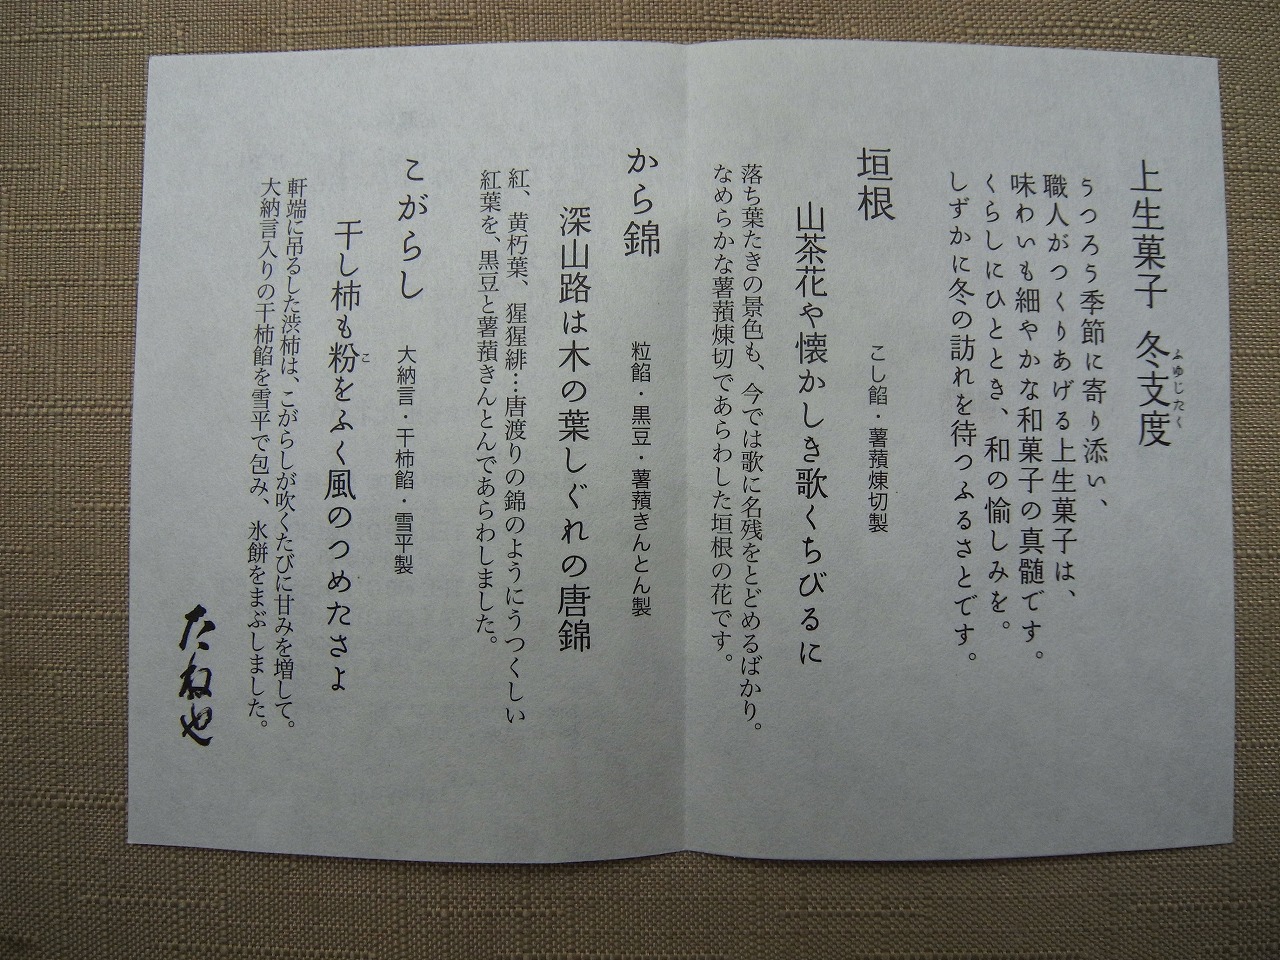 上生菓子 冬支度
ふゆじたく
うつろう季節に寄り添い、
職人がつくりあげる上生菓子は、
味わいも細やかな和菓子の真髄です。
くらしにひととき、和の愉しみを。
しずかに冬の訪れを待つふるさとです。
垣根 こし餡・薯蕷煉切製
山茶花や懐かしき歌くちびるに
落ち葉たきの景色も、今では歌に名残をとどめるばかり。
なめらかな薯蕷煉切であらわした垣根の花です。
から錦 粒餡・黒豆・薯蕷きんとん製
深山路は木の葉しぐれの唐錦
紅、黄朽葉、猩猩緋…唐渡りの錦のようにうつくしい
紅葉を、黒豆と薯蕷きんとんであらわしました。
こがらし 大納言・干柿餡・雪平製
干し柿も粉をふく風のつめたさよ
こ
軒端に吊るした渋柿は、こがらしが吹くたびに甘みを増して。
大納言入りの干柿餡を雪平で包み、氷餅をまぶしました。
たねや